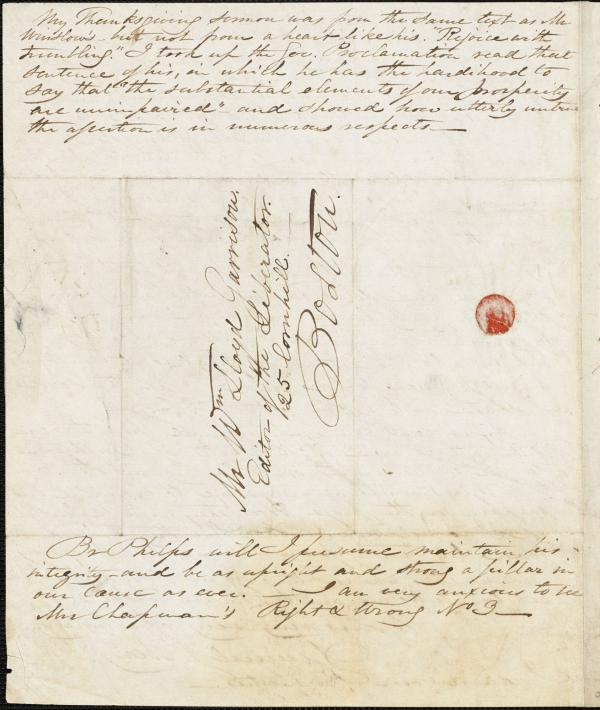 My Thanksgiving sermon was from the same text as Mr
Winslow's - but not from a heart like his. "Rejoice with
trembling." I took up the Gov. Proclamation read that
sentence of his, in which he has the hardihood to
say that "the substantial elements of our prosperity
are unimpaired" and showed how utterly untrue
the assertion is in numerous respects —
Mr Wm Lloyd Garrison.
Editor of the Liberator.
25 Cornhill. —
Boston.
Br Phelps will I presume maintain his
integrity - and be as upright and strong a pillar in
our cause as ever. — I am very anxious to see
Mrs Chapman's Right & Wrong No 3 —